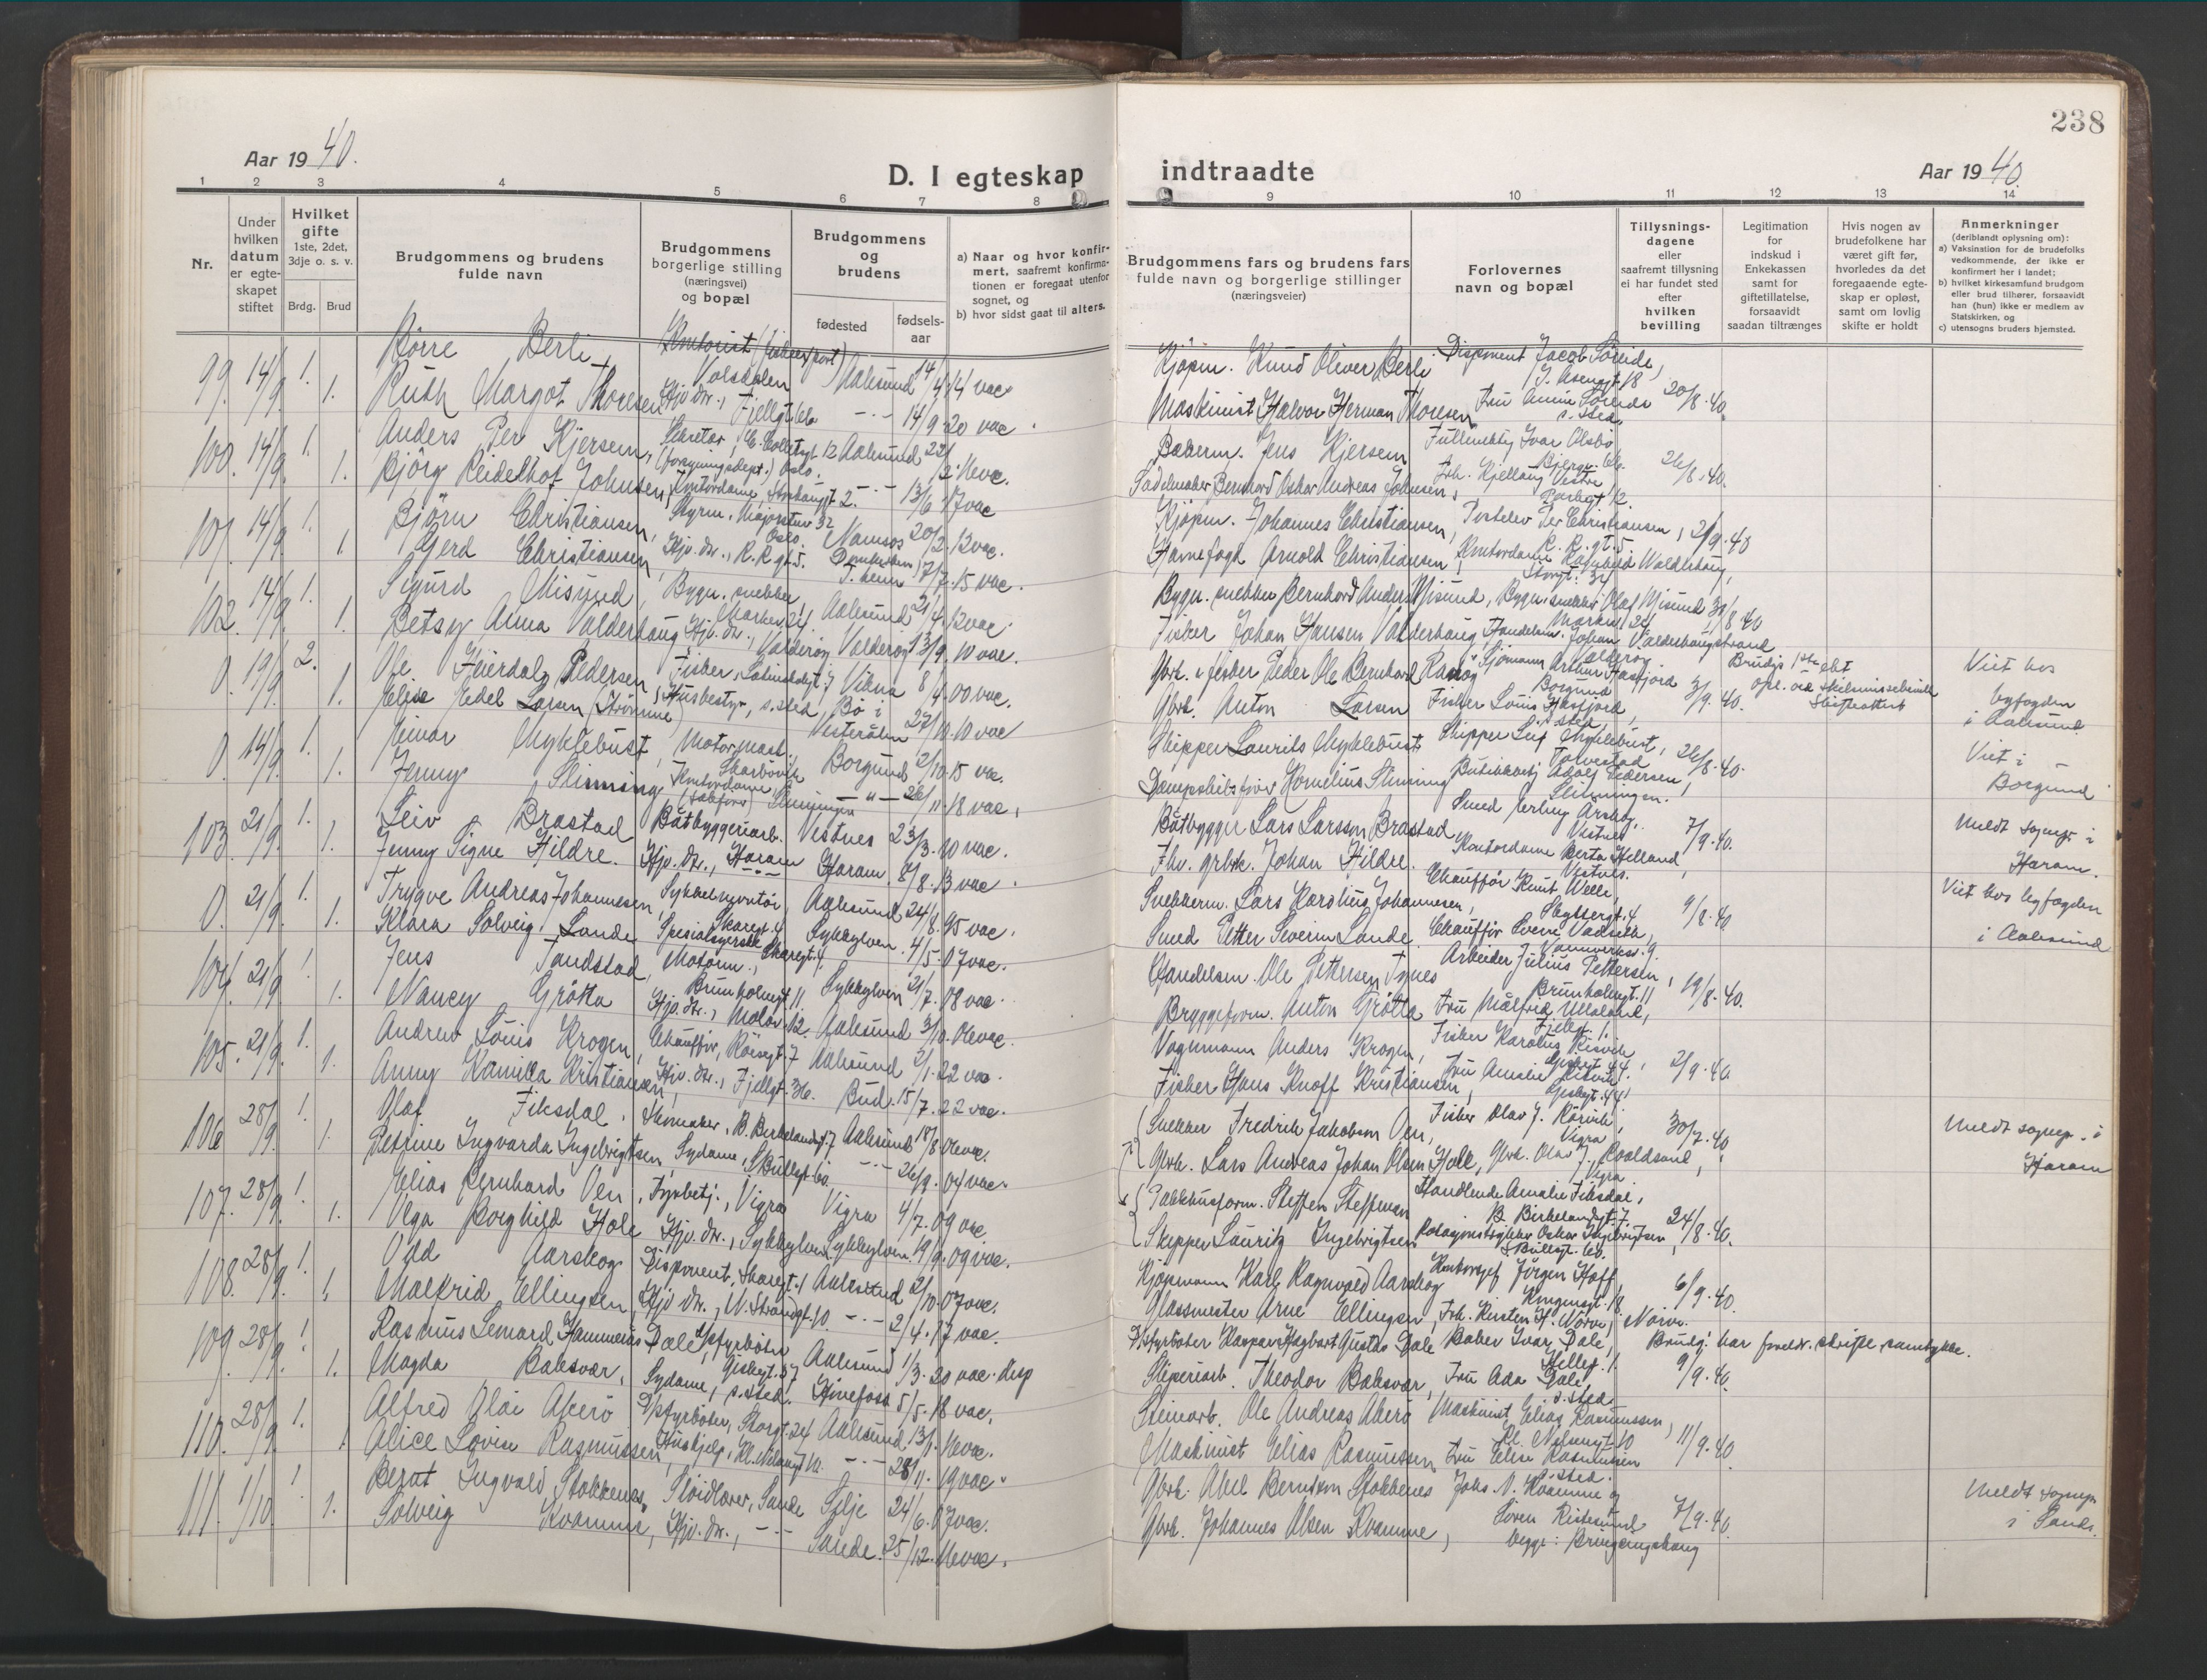 238
Aar 1940.
D. I egteskap
indtraadte
Aar 1940.
1 2 3 4 5 6 7 8 9 10 11 12 13 14
Nr.
Under hvilken datum er egteskapet stiftet
Hvilket gifte
1ste, 2det, 3dje o. s. v.
Brdg. Brud
Brudgommens og brudens fulde navn
Brudgommens borgerlige stilling (næringsvei) og bopæl
Brudgommens og brudens
fødested
fødsels-aar
a) Naar og hvor konfirmert, saafremt konfirmationen er foregaat utenfor sognet, og
b) hvor sidst gaat til alters.
Brudgommens fars og brudens fars fulde navn og borgerlige stillinger (næringsveier)
Forlovernes navn og bopæl
Tillysningsdagene eller saafremt tillysning ei har fundet sted efter hvilken bevilling
Legitimation for indskud i Enkekassen samt for giftetillatelse, forsaavidt saadan tiltrænges
Hvis nogen av brudefolkene har været gift før, hvorledes da det foregaaende egteskap er opløst, samt om lovlig skifte er holdt
Anmerkninger
(deriblandt oplysning om):
a) Vaksination for de brudefolks vedkommende, der ikke er konfirmert her i landet;
b) hvilket kirkesamfund brudgom eller brud tilhører, forsaavidt han (hun) ikke er medlem av Statskirken, og
c) utensogns bruders hjemsted.
99. 14/9. 1. Børre Berli, Volsdalen Aalesund 14/4. 14 vac. Kjøpm. Knud Oliver Berli Disponent Jacob Søreide,
1. Ruth Margot Thoresen Hjv. dtr., Fjellgt. 6b -"- 14/9 20 vac. Maskinist Halvor Herman Thoresen Fru Anna Søreide s. sted 20/8. 40.
100. 14/9. 1. Anders Per Kjersem, Sekretær, C. Collettsgt. 12 Oslo. Aalesund 22/12. 16 vac. Bakerm. Jens Kjersem Fullmektig Ivar Olsbø
1. Bjørg Reidelhof Johnsen, Kontordame, 2. -"- 13/6 17 vac Sadelmaker Bernhard Oskar Andreas Johnsen, Frk. Kjellaug Vestre Parkgt. 12. 26/8. 40.
101. 14/9. 1. Bjørn Christiansen, Styrm., Majorstuv 32 Oslo. Namsos 20/2. 12 vac. Kjøpm. Johannes Christiansen, Per Christiansen, R. R. gt. 5
1. Gerd Christiansen, Hjv. dtr., R. R. gt. 5. T. heim 17/7. 15 vac. Havnefogd Arnold Christiansen, Kontordame Ragnhild Walderhaug, Storgt. 34 2/9. 40
102. 14/9. 1. Sigurd Misund, Bygn. snekker, Marken 24, Aalesund 21/4. 12 vac. Bygn. snekker Bernhard Anders Misund, Bygn. snekker Olaf Misund Marken 24 31/8 40
1. Betsy Anna Valderhaug, Hjv. dtr., Valderøy Valderøy 13/9. 10 vac. Fisker Johan Hansen Valderhaug, Handelsm. Johan Valderhaugstrand Valderøy
0. 19/9. 2. Ole Heierdal Pedersen, Fisker, Vikna 8/4. 00 vac. Gbrk. & fisker Peder Ole Bernhard Ramøy Sjømann Arthur Hasfjord Borgund Viet hos
1. Elise Edel Larsen (Strømme), Husbestyr, s. sted, Bø i Vesterålen 27/10. 10 vac Gbrk. Anton Larsen Fisker Louis Hasfjord, s. sted, 3/9. 40. byfogden i Aalesund.
0. 14/9. 1. Einar Myklebust, Motormask. Skarbøvik Borgund 2/10. 15 vac. Skipper Laurits Myklebust Skipper Leif Myklebust, Tolvestad 26/8. 40. Viet i
1. Jenny Slinning, Kontordame Slinningen -"- 26/11. 18 vac, Dampskibsfører Kornelius Slinning Butikkbestj. Adolf Pedersen, Slinningen. Borgund
103. 21/9. 1. Leiv Brastad Båtbyggeriarb. Vestnes 23/3. 10 vac. Båtbygger Lars Larsson Brastad Smed Erling Vestnes 7/9. 40. Meldt sognepr. i
1. Jenny Signe Hildre. Hjv. dtr., Haram Haram. 8/8. 13 vac. Fhv. grbk. Johan Hildre. Kontordame Berta Helland, Vestnes. Haram.
0. 21/9. 1. Trygve Andreas Johannessen, Sykkelmontør, Skaregt. 4 Aalesund 24/8. 95 vac. Snekkerm. Lars Karolius Johannesen, Chauffør Knut Welle, Skyttergt. 4 9/8. 40 Viet hos byfogden
1. Klara Solveig Lande Spesialsyerske Skaregt. 4. Sykkylven. 4/5. 07 vac. Smed Petter Severin Lande Chauffør Sverre Vadseth, i Aalesund
104. 21/9. 1. Jens Tandstad, Motorm., Brunholmgt. 11 Sykkylven 21/7. 08 vac. Handelsm. Ole Pettersen Tynes Arbeider Julius Pettersen, Brunholmgt. 11 19/8. 40.
1. Nancy Grøtta Hjv. dtr., Molov. 12. Aalesund 3/10. 06 vac. Bryggeform. Anton Grøtta Fru Målfrid Ulleland,
105. 21/9. 1. Andrew Louis Krogen, Chauffør, Røisegt. 7 Aalesund 3/1. 22 vac. Vognmann Anders Krogen, Fisker Karolus Risvik
1. Anny Kamilla Kristiansen, Hjv. dtr., Fjellgt. 36. Bud. 15/7. 22 vac. Fisker Hans Knoff Kristiansen, Fru Amalie Risvik 2/9. 40.
106 28/9. 1. Olaf Fiksdal. Skomaker, B. Birkelandsgt. 7 Aalesund 18/8 06 vac. Snekker Fredrik Jakobsen Oen, Fisker Olav J. Rørvik, Vigra 30/7. 40 Meldt sognepr. i
1. Petrine Ingvarda Ingebrigtsen, Sydame, Skutlegt. 6b. -"- 26/9. 04 vac. Gbrk. Lars Andreas Johan Olsen Hole, Gbrk. Olav J. Roaldsand, Vigra Haram
107. 28/9. 1. Elias Bernhard Oen, Fyrbetj., Vigra Vigra 4/7. 09 vac. Pakkhusform. Steffen Steffensen Handlende Amalie Fiksdal, B. Birkelandsgt. 7.
1. Olga Borghild Hole Hjv. dtr., Sykkylven Sykkylven. 19/9. 09 vac. Skipper Lauritz Ingebrigtsen Oskar Ingebrigtsen, 24/8. 40.
108. 28/9. 1. Odd Aarskog Disponent, Skaregt. 1 Aalesund 2/10. 07 vac. Kjøpmann Karl Ragnvald Aarskog Kontorsjef Jørgen Hoff, Kongensgt. 18
1. Målfrid Ellingsen, Hjv. dtr., N. Strandgt. 10. -"- 2/4. 17 vac. Glassmester Arne Ellingsen, Frk. Kirsten H. Nørve, Nørve. 6/9. 40.
109. 28/9. 1. Rasmus Lennard Hammerås Dale, D/sfyrbøter Giskegt. 37 Aalesund 1/3. 20 vac. disp D/sfyrbøter Kaspar Hagbart Gustav Dale Baker Ivar Dale, Brudg. har foreldr. skriftl. samtykke.
1. Magda Baksvær, Sydame, s. sted. Hønefoss 5/5. 18 vac. Sliperiarb. Theodor Baksvær, Fru Ada Dale, s. sted. 9/9. 40.
110. 28/9. 1. Alfred Olai Akerø D/sfyrbøter, Storgt. 24 Aalesund 13/1. 16 vac. Steinarb. Ole Andreas Akerø Maskinist Elias Rasmussen, Kl. Nilsensgt. 10
1. Alice Lovise Rasmussen, Hushjelp, Kl. Nilsensgt. 10. -"- 28/11. 19 vac. Maskinist Elias Rasmussen Fru Elise Rasmussen s. sted. 11/9. 40.
111. 1/10. 1. Bernt Ingvald Stokkenes, Sløidlærer, Sande Silje 24/6. 07 vac. Gbrk. Abel Berntsen Stokkenes Johs. N. Kvamme og 7/9. 40. Meldt sognepr.
1. Solveig Kvamme, Hjv. dtr., -"- Sande. 25/12. 16 vac. Gbrk. Johannes Olsen Kvamme, Søren Ristesund begge: Bringsinghaug i Sande.